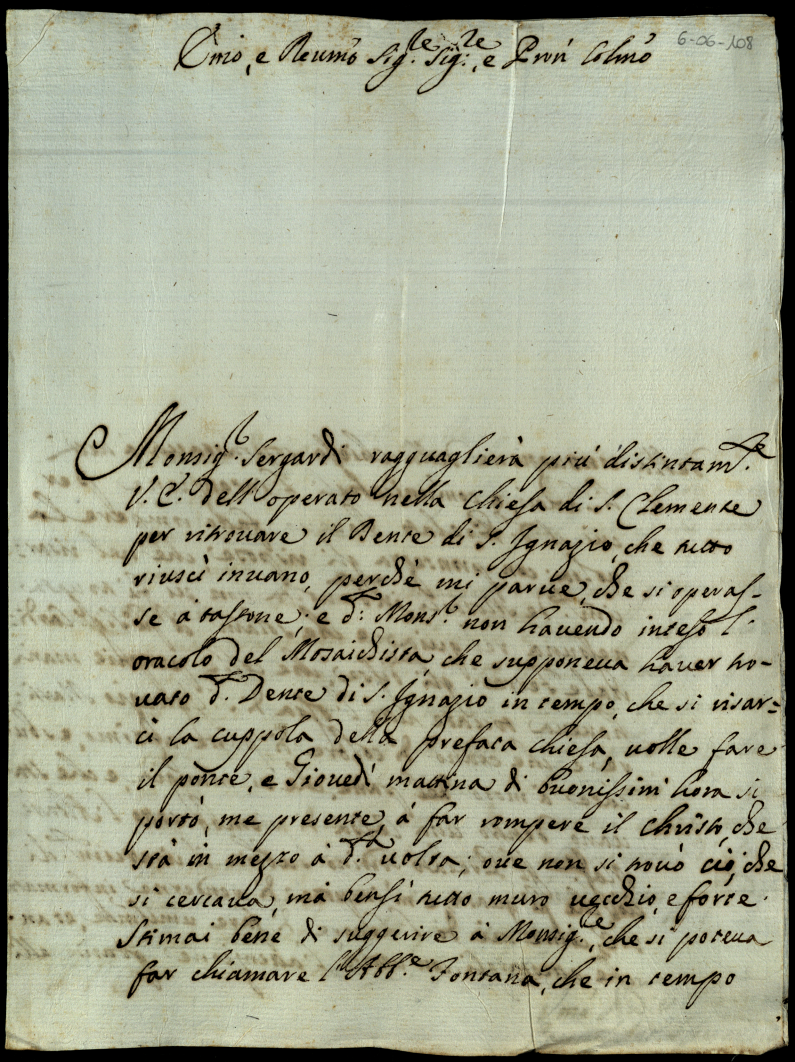 6-06-108
Emo, e Reumo Sig.re Sig.re, e Pron Colmo
Monsig.r Sergardi ragguaglierà più distintam.te
V. E. dell'operato nella Chiesa di S. Clemente
per ritrouare il Dente di S. Ignazio, che tutto
riuscì inuano, perchè mi parue, che si operas-
se à tastone; e d.o Mons.r non hauendo inteso l'
oracolo del Mosaichista, che supponeua hauer tro-
uato d.o Dente di S. Ignazio in tempo, che si risar-
cì la cuppola della prefata chiesa, uolle fare
il ponte, e Giouedì mattina di buonissim' hora si
portò, me presente, à far rompere il Christo, che
stà in mezzo à d.ta uolta; oue non si trouò ciò, che
si cercaua, mà bensì tutto muro uecchio, e forte.
Stimai bene di suggerire à Monsig.re, che si poteua
far chiamare l'Abb.e Fontana, che in tempo